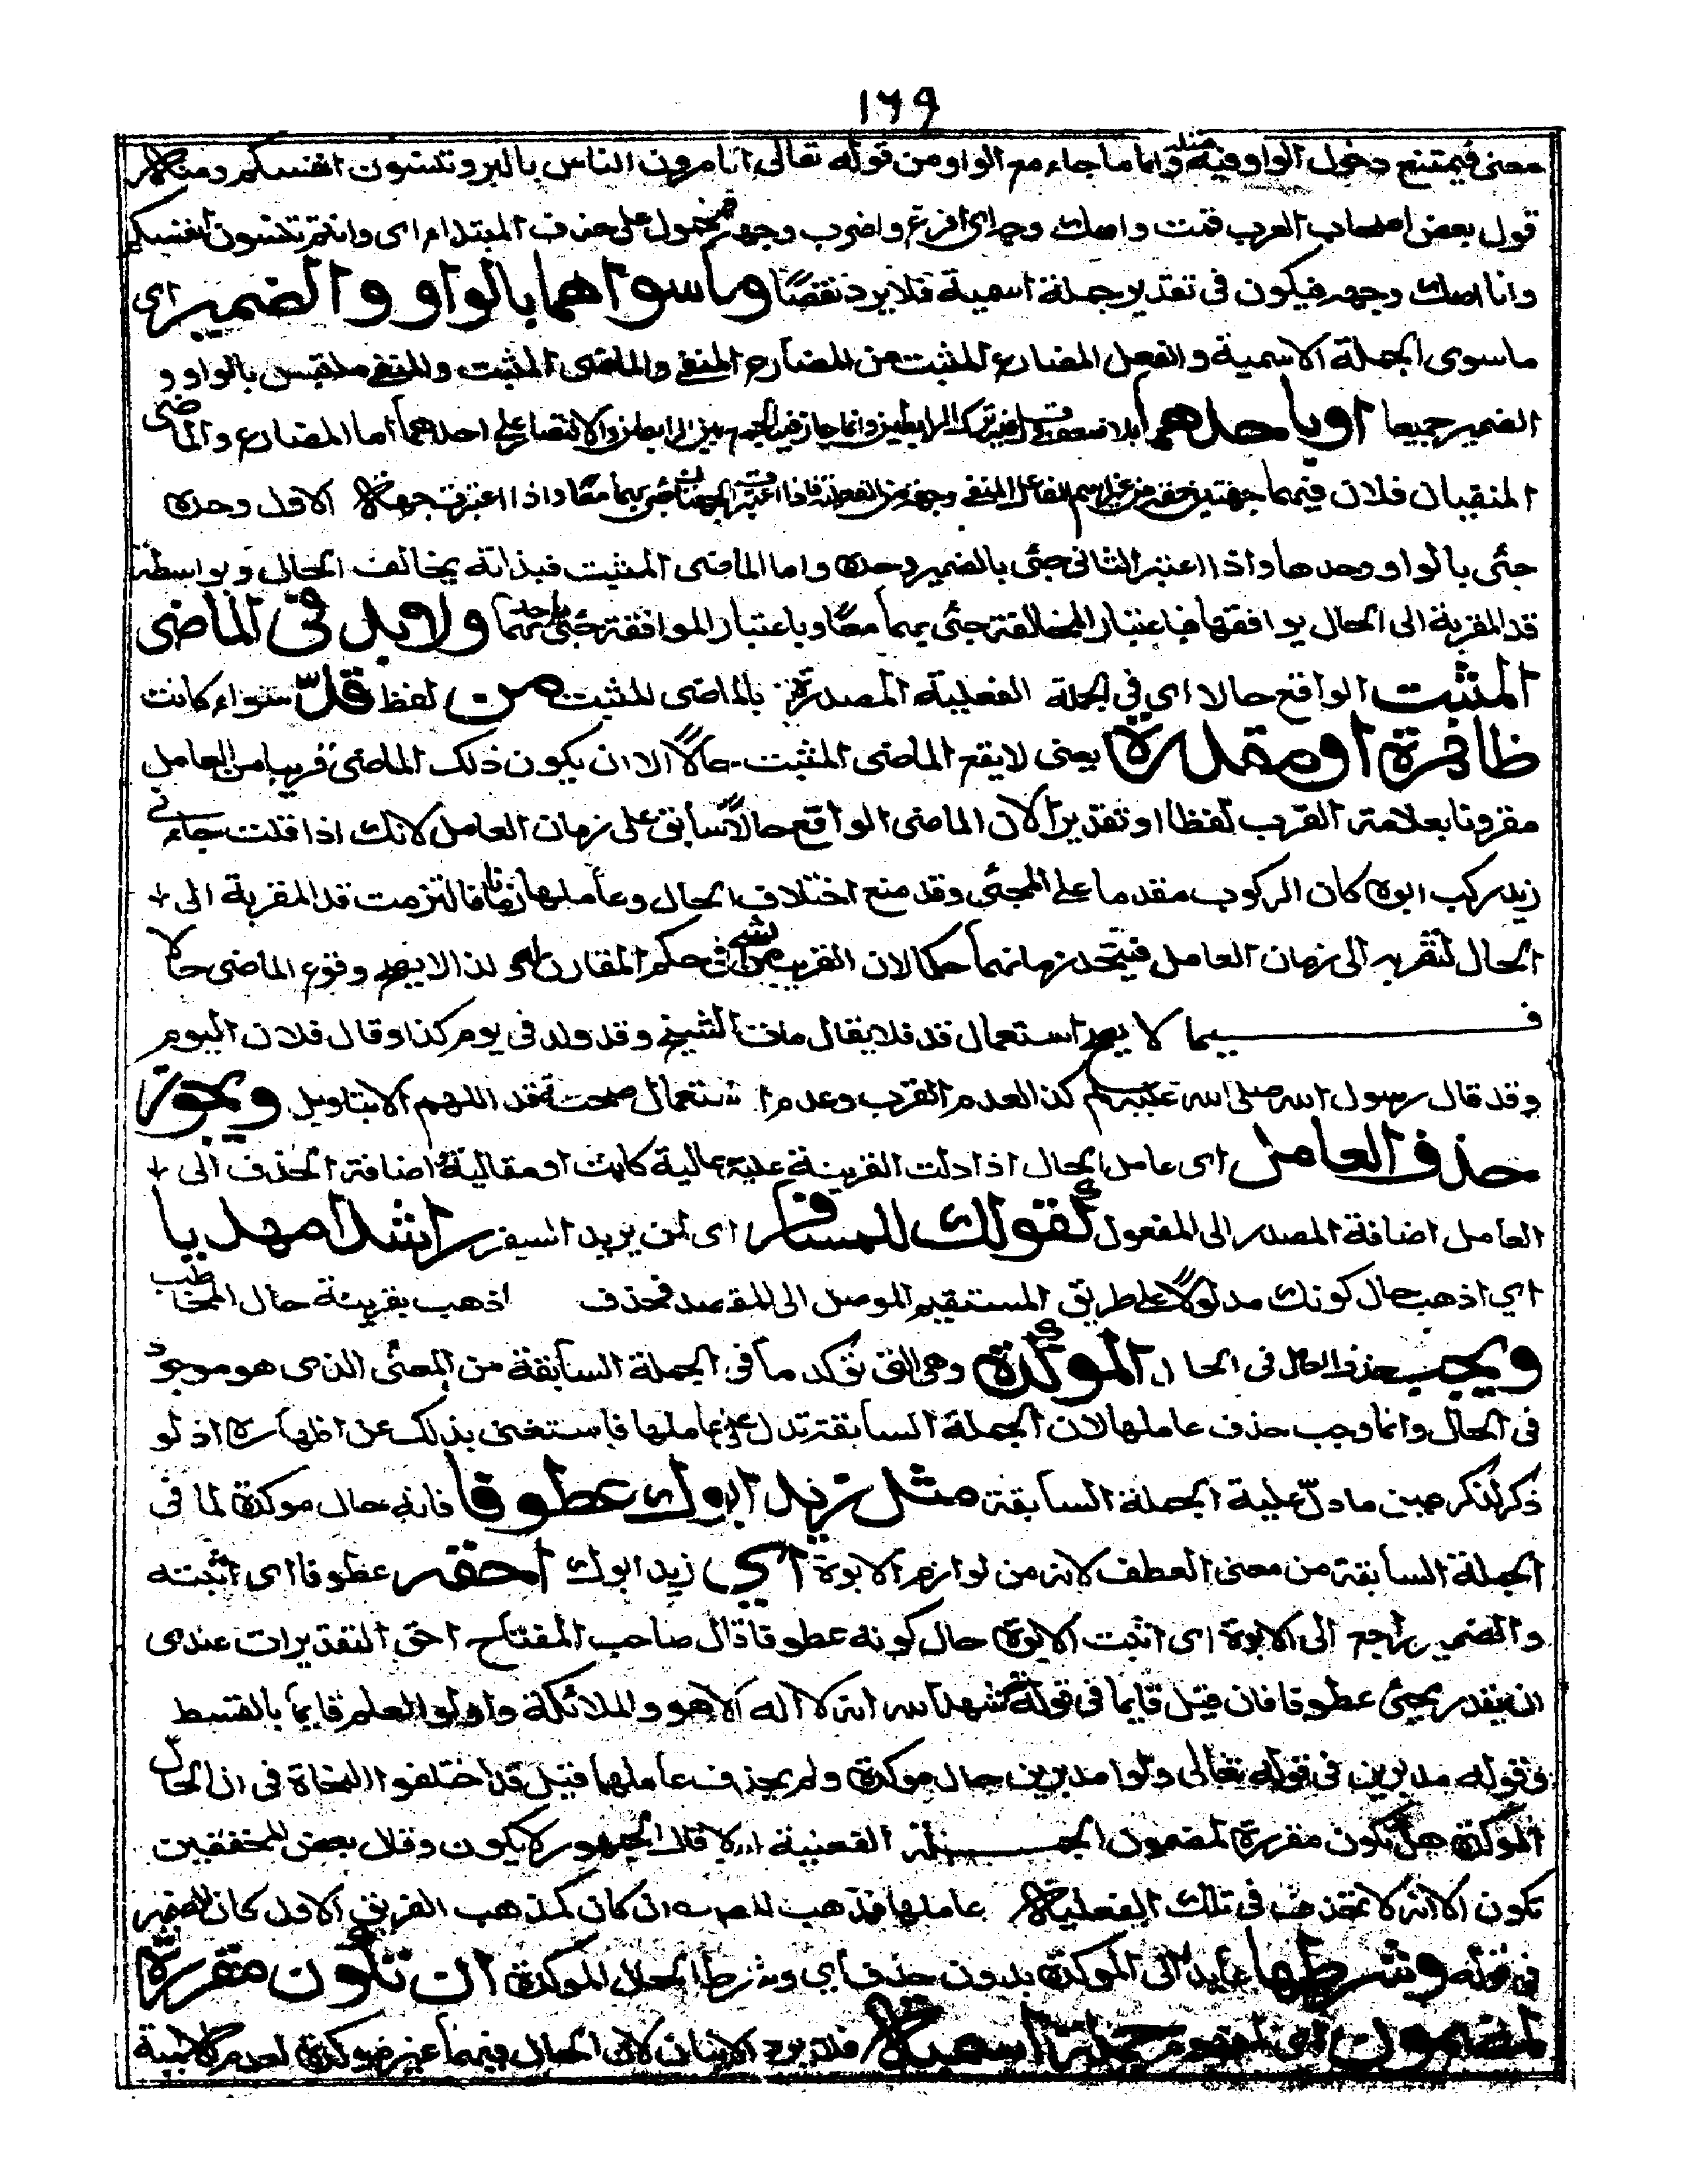 ١٦٩
معنى فيمتنع دخول الواو فيه مثله وانما ما جاء مع الواو من قوله تعالى اتامرون الناس بالبر وتنسون انفسكم ومنه
قول بعض اصحاب العرب قمت واصك وجهه اى افزع واضرب وجهه فمحمول على حذف المبتدا اى وانتم تنسون انفسكم
وانا اصك وجهه فيكون فى تقدير جملة اسمية فلا يرد نقضًا وما سواهما بالواو والضمير اى
ما سوى الجملة الاسمية والفعل المضارع المثبت من المضارع المنفى والماضى المثبت والمنفى ملتبس بالواو و
الضمير جميعا او باحدهما بلا ضعف الرابطين وانما جاز فيها الجمع بين الرابطين والاقتصار على احدهما اما المضارع والماضى
المنفيان فلان فيهما جهتين اسم الفاعل المنفى وجهة فاذا اعتبرت الجهتان بهما معًا واذا اعتبرت جهة الاول وحده
جئى بالواو وحدها واذا اعتبر الثانى جئى بالضمير وحده واما الماضى المثبت فبذاته يخالف الحال وبواسطة
قد المقربة الى الحال يوافقها فباعتبار المخالفة جئى بهما معًا وباعتبار الموافقة جئى باحدهما ولا بد فى الماضى
المثبت الواقع حالا اى فى الجملة الفعلية المصدرة بالماضى المثبت من لفظ قد سواء كانت
ظاهرة او مقدرة يعنى لا يقع الماضى المثبت حالًا الا ان يكون ذلك الماضى قريبا من العامل
مقرونا بعلامة القرب لفظا او تقديرا لان الماضى الواقع حالًا سابق على زمان العامل لانك اذا قلت جاءنى
زيد ركب ابوه كان الركوب مقدما على المجئى وقد منع اختلاف الحال وعاملها زمانا فالتزمت قد المقربة الى
الحال لتقربه الى زمان العامل فيتحد زمانهما حكما لان القريب من شئ فى حكم المقارن له ولذا لا يصح وقوع الماضى حالا
فيما لا يصح استعمال قد فلا يقال مات الشيخ وقد ولد فى يوم كذا وقال فلان اليوم
وقد قال رسول الله صلى الله عليه كذا لعدم القرب وعدم استعمال صحت قد اللهم الا بتاويل ويجوز
حذف العامل اى عامل الحال اذا دلت القرينة عليه حالية كانت او مقالية اضافة الحذف الى
العامل اضافة المصدر الى المفعول كقولك للمسافر اى لمن يريد السفر راشدا مهديا
اي اذهب حال كونك مدلولًا على طريق المستقيم الموصل الى المقصد فحذف اذهب بقرينة حال المخاطب
ويجب حذف العامل فى الحال المؤكدة وهى التى توكد ما فى الجملة السابقة من المعنى الذى هو موجود
فى الحال وانما وجب حذف عاملها لان الجملة السابقة تدل على عاملها فاستغنى بذلك عن اظهاره اذ لو
ذكر لذكر عين ما دلّ عليه الجملة السابقة مثل زيد ابوك عطوفا فانه حال موكدة لما فى
الجملة السابقة من معنى العطف لانه من لوازم الابوة اي زيد ابوك احقه عطوفا اى اثبته
والضمير راجع الى الابوة اى اثبت الابوة حال كونه عطوفا قال صاحب المفتاح احق التقديرات عندى
ان يقدر يحنى عطوفا فان قيل قايما فى قوله شهد الله انه لا اله الا هو والملائكة واولوا العلم قايما بالقسط
وقوله مدبرين فى قوله تعالى ولوا مدبرين حال موكدة ولم يحذف عاملها قيل قد اختلفوا النحاة فى ان الحال
الموكدة هل تكون مقررة لمضمون الجملة الفعلية ام لا قال الجمهور لا يكون وقال بعض المحققين
تكون الا انه لا يحذف فى تلك الفعلية عاملها فمذهب المصـ ان كان كمذهب الفريق الاول كان الضمير
فى قوله وشرطها عايدا الى الموكدة بدون حذف اي وشرط الحال الموكدة ان تكون مقررة
لمضمون اى لمفهوم جملة اسمية فلا يرد الايتان لان الحال فيهما غير موكدة لعدم الاسمية